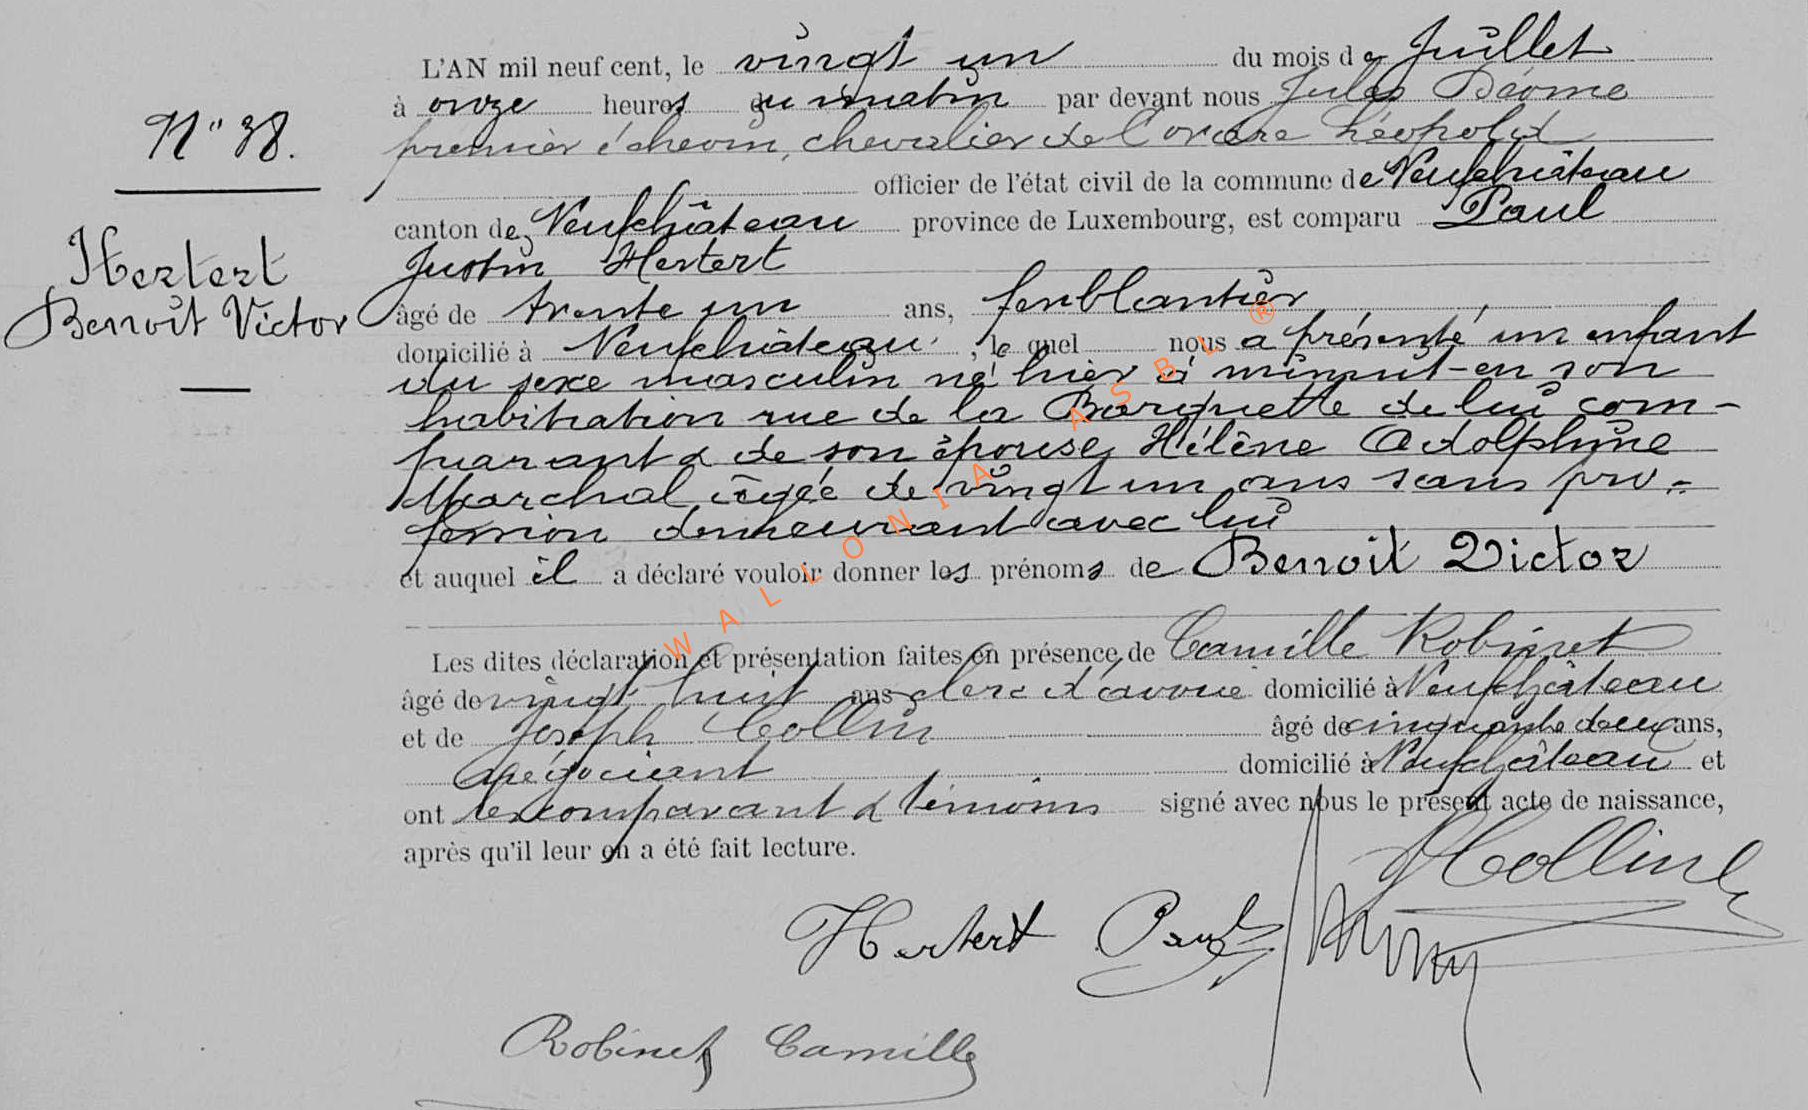 L'AN mil neuf cent, le vingt un du mois de Juillet
à onze heures du matin par devant nous Jules Déome
N° 38.
premier échevin, chevalier de l'ordre Léopold
officier de l'état civil de la commune de Neufchâteau
canton de Neufchâteau province de Luxembourg, est comparu Paul
Hertert
Benoît Victor
Justin Hertert
âgé de trente un ans, ferblantier
domicilié à Neufchâteau, lequel nous a présenté un enfant
du sexe masculin né hier à minuit en son
habitation rue de la Barquette de lui com-
parant & de son épouse Hélène Adolphine
Marchal âgée de vingt un ans sans pro-
fession demeurant avec lui
et auquel il a déclaré vouloir donner les prénoms de Benoit Victor
Les dites déclaration et présentation faites en présence de Camille Robinet
âgé de vingt huit ans clerc d'avoué domicilié à Neufchâteau
et de Joseph Collin âgé de cinquante deux ans,
négociant domicilié à Neufchâteau et
ont les comparant & témoins signé avec nous le présent acte de naissance,
après qu'il leur en a été fait lecture.
J Collin
Hertert Paul
Robinet Camille
WALLONIA ASBL ®